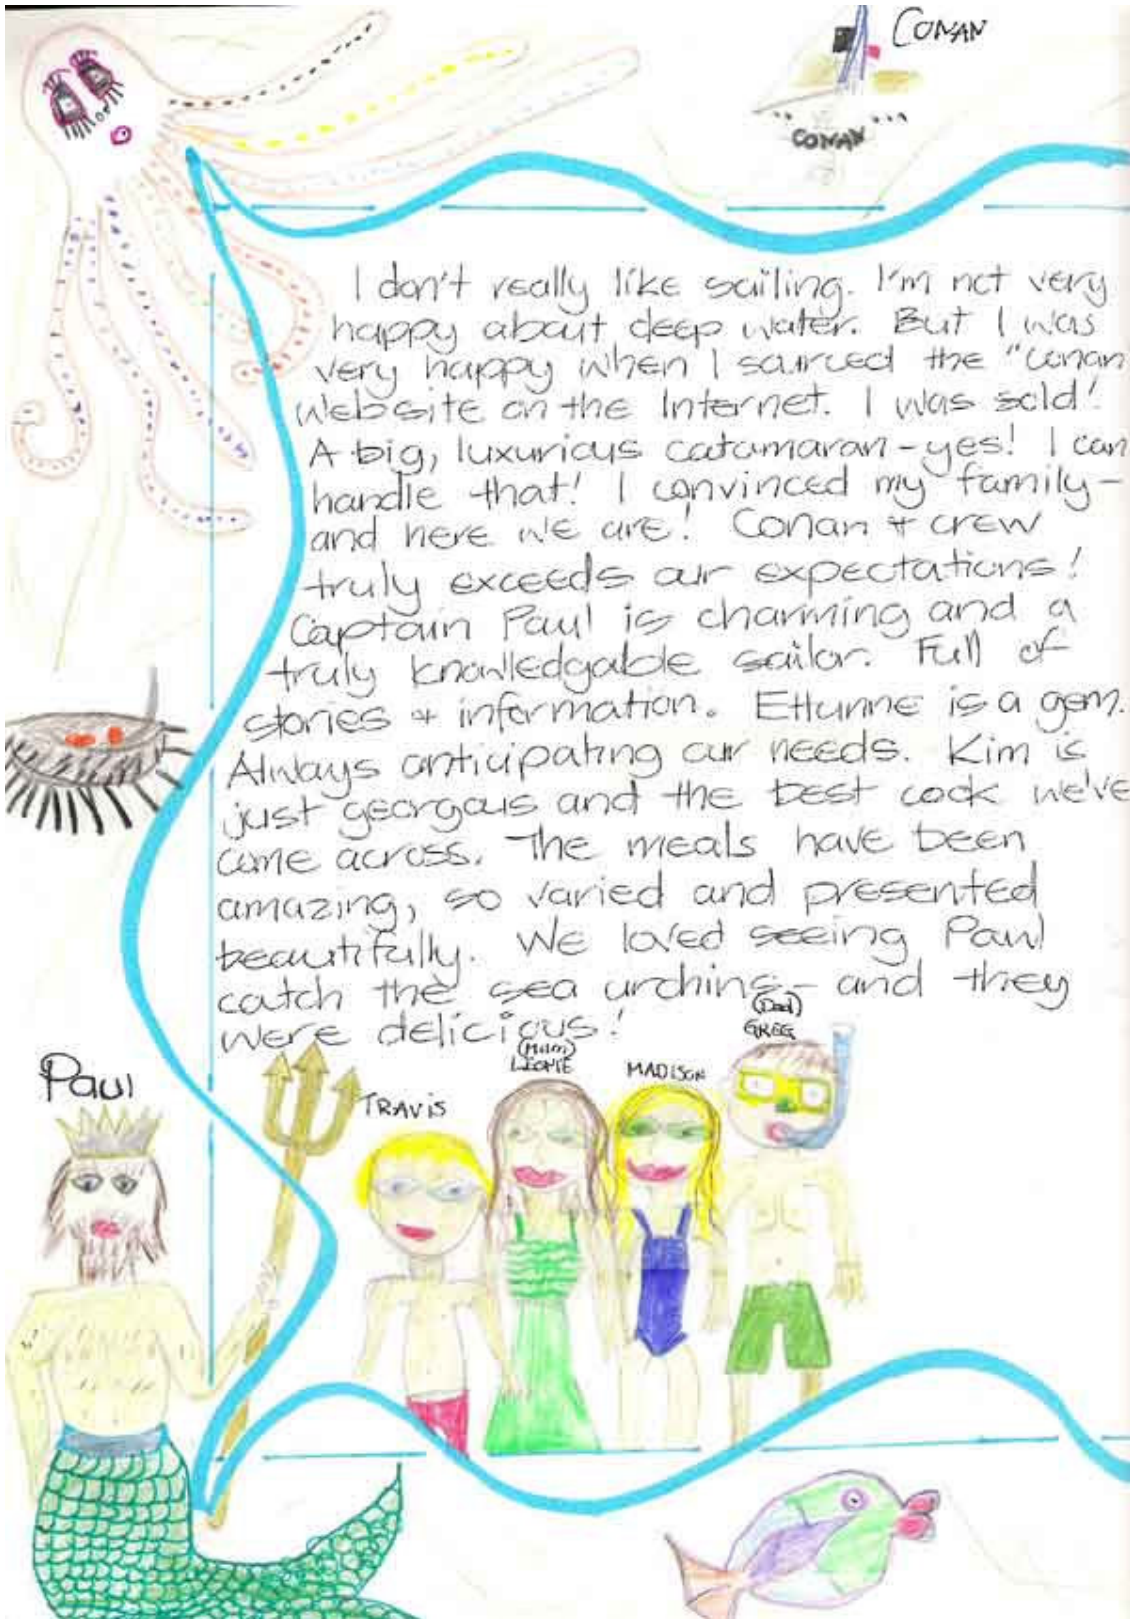 CONAN
CONAN
I don't really like sailing. I'm not very
happy about deep water. But I was
very happy when I sourced the "Conan
website on the Internet. I was sold!
A big, luxurious catamaran - yes! I can
handle that! I convinced my family -
and here we are! Conan + crew
truly exceeds our expectations!
Captain Paul is charming and a
truly knowledgable sailor. Full of
stories + information. Ettunne is a gem.
Always anticipating our needs. Kim is
just georgous and the best cook we've
come across. The meals have been
amazing, so varied and presented
beautifully. We loved seeing Paul
catch the sea urchins - and they
were delicious!
Paul
TRAVIS
(Mum)
LEONIE
MADISON
(Dad)
GREG